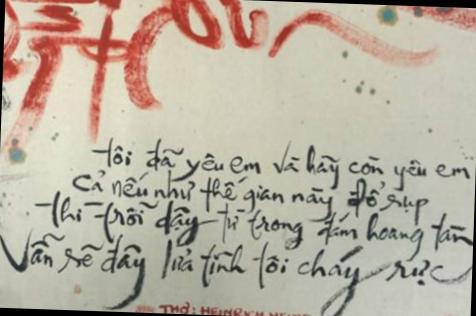 tôi đã yêu em và hãy còn yêu em
Cả nếu như thế gian này đổ sụp
thì trỗi dậy từ trong đám hoang tàn
Vẫn sẽ dậy lửa tình tôi cháy rực
THƠ: HEINRICH HEINE